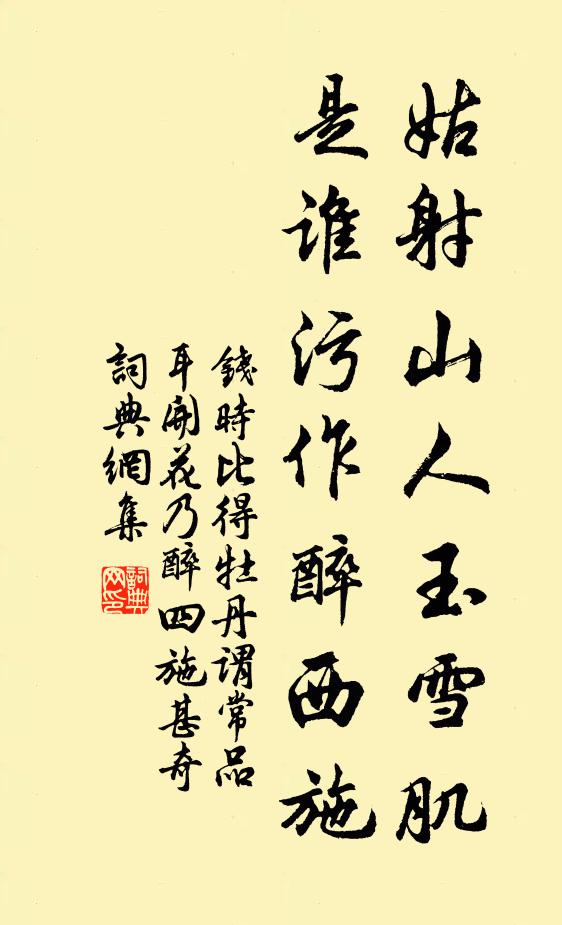 姑射山人玉雪肌
是谁污作醉西施
錢時比得牡丹謂常品
耳開花乃醉四施甚奇
詞典網集
詞典網印